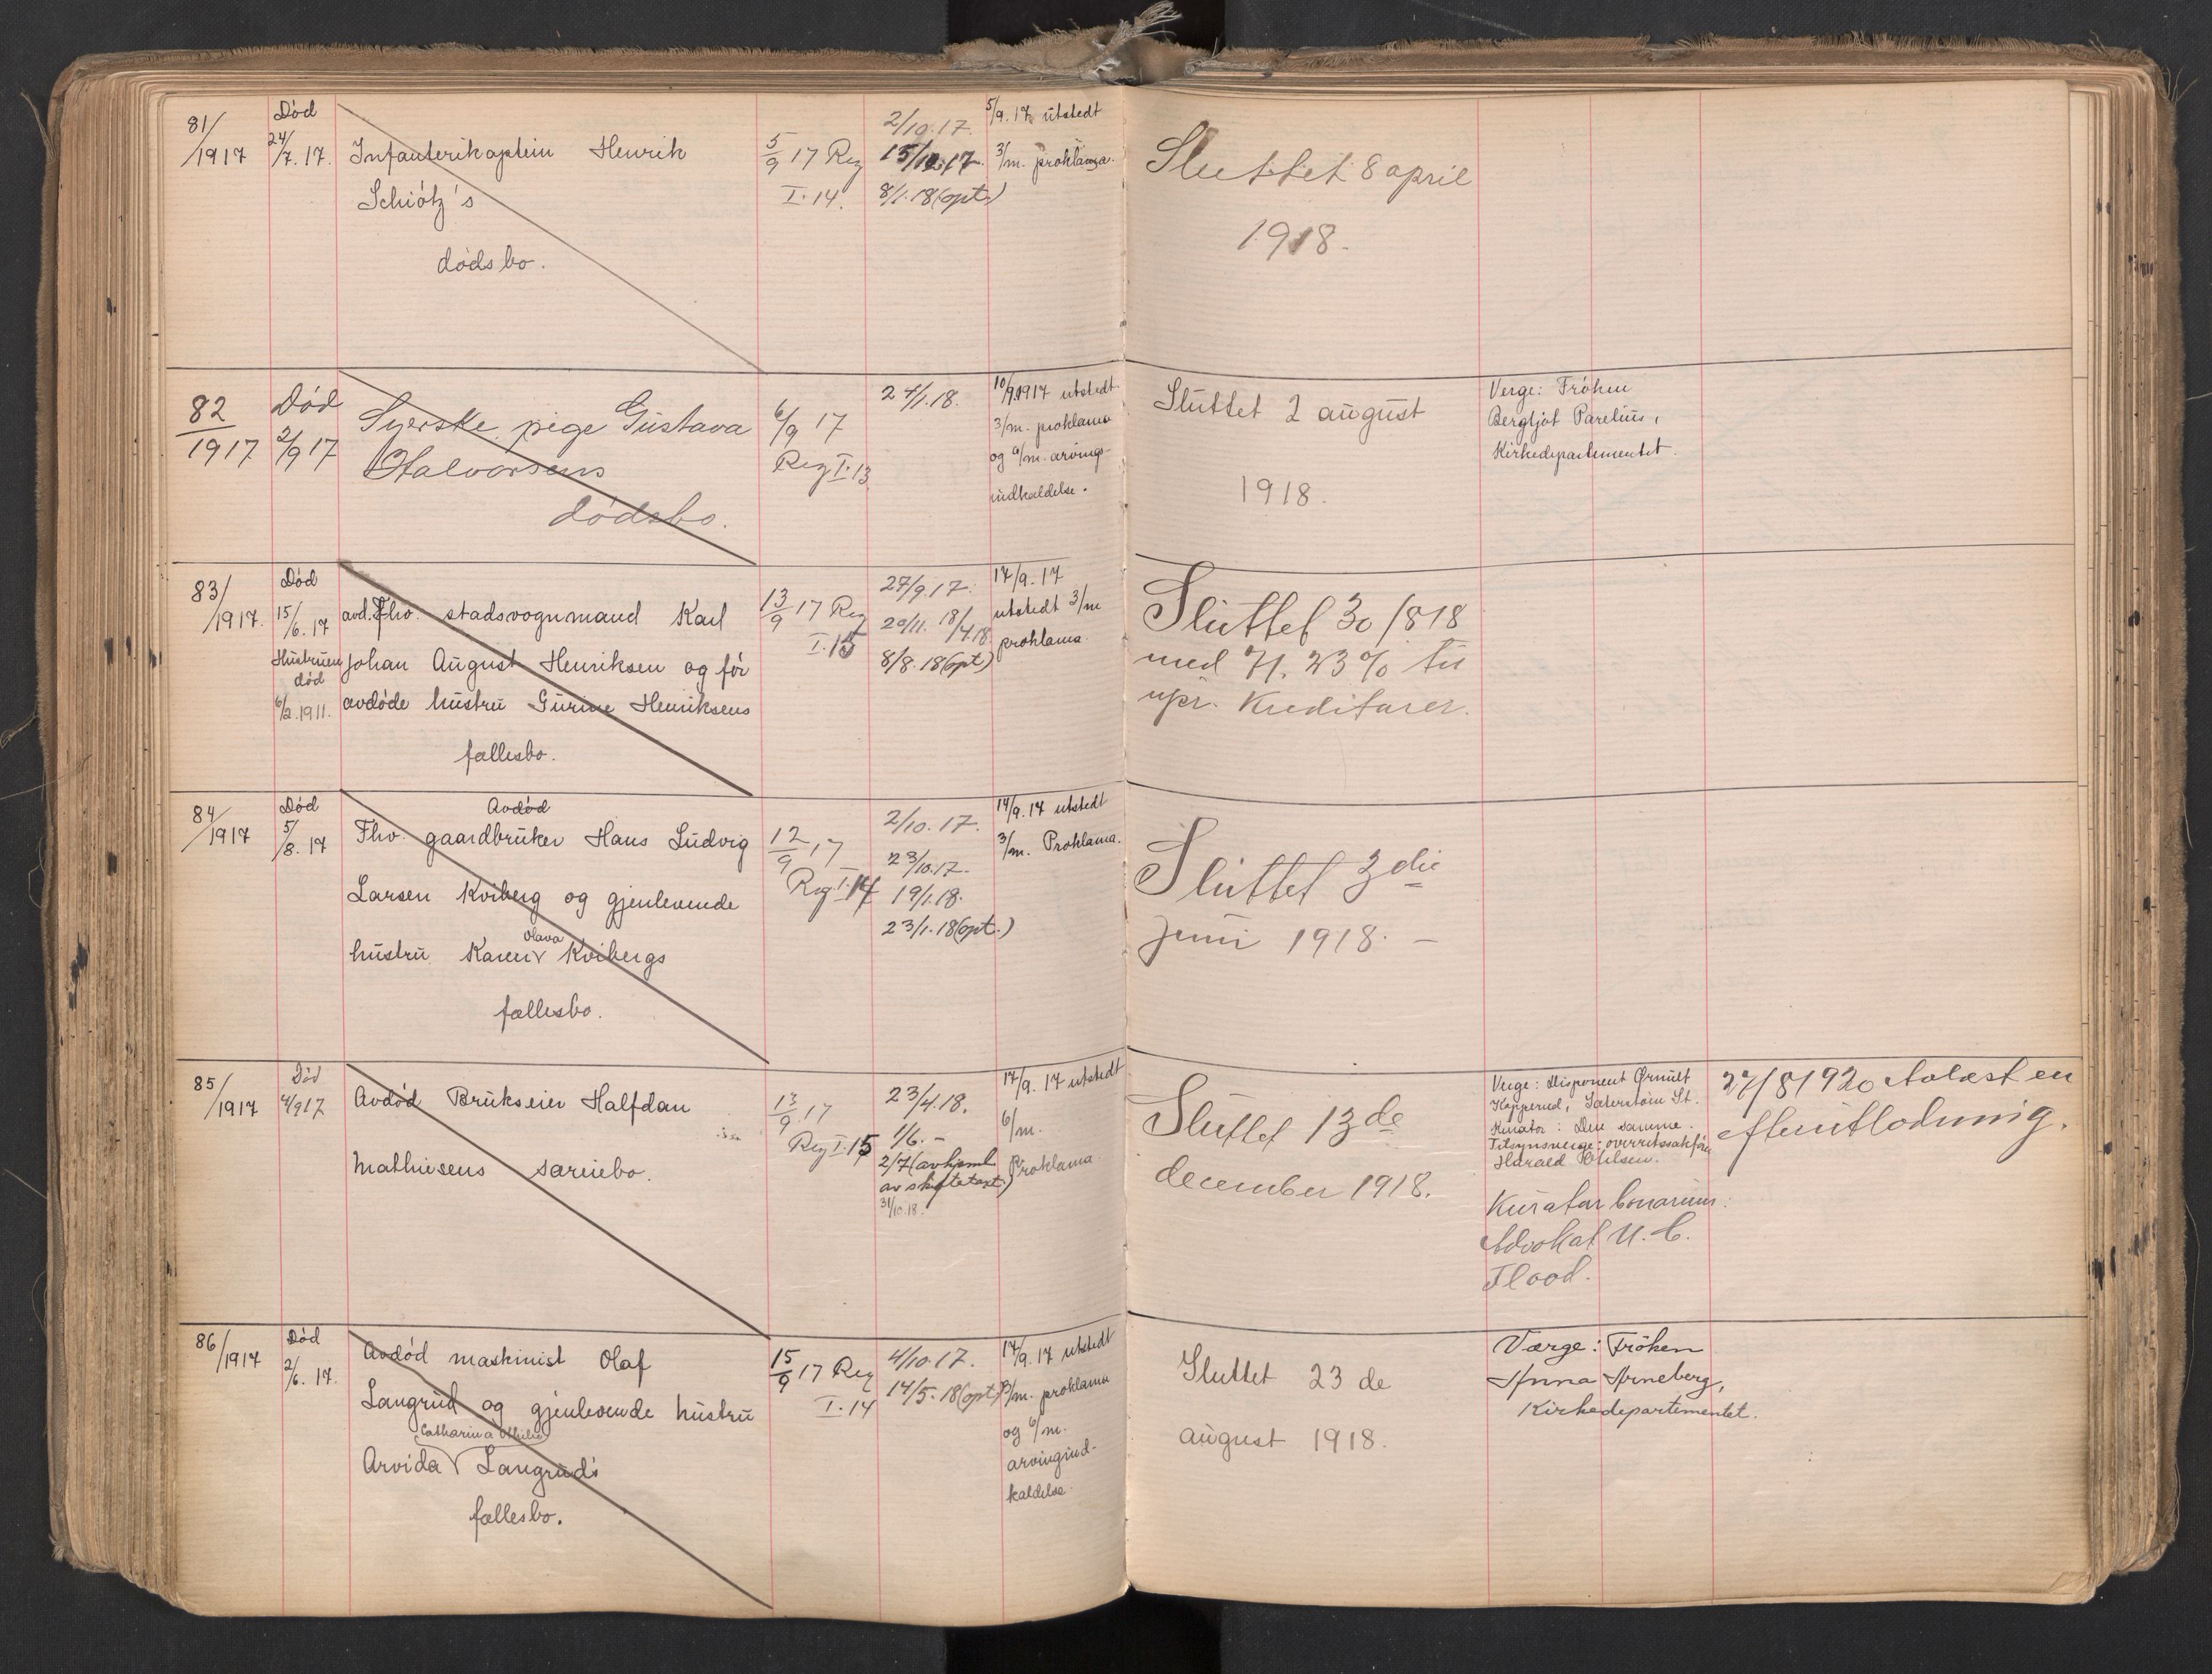 81/1917
Død
24/7. 17.
Infanterikaptein Henrik
Schiötz's
dødsbo.
5/9 17 Reg
I. 14.
2/10. 17.
15/12. 17.
8/1. 18 (opt.)
5/9. 17 utstedt
3/m. proklama.
Sluttet 8 april
1918.
82/1917
Død
2/9 17
Syerske, pige Gustava
Halvorsens
dødsbo.
6/9 17
Reg I. 13
24/1. 18.
10/9. 1917 utstedt
3/m. proklama
og 6/m. arvings-
indkaldelse.
Sluttet 2 august
1918.
Verge: Frøken
Bergljot Parelius,
Kirkedepartementet.
83/1917.
Død
15/6. 17
Hustruen
død
6/2. 1911.
avd. Fhv. stadsvognmand Karl
Johan August Henriksen og før
avdøde hustru Gurine Henriksens
fællesbo.
13/9 17 Reg
I. 15
27/9. 17.
20/11. 18/4. 18
8/8. 18 (opt)
17/9. 17
utstedt 3/m
proklama
Sluttet 30/8 18
med 71. 23 % til
upr. Kreditorer.
84/1917
Død
5/8. 17
Avdød
Fhv. gaardbruker Hans Ludvig
Larsen Kviberg og gjenlevende
Olava
hustru Karen Kvibergs
fællesbo.
12/9 17
Reg I. 14
2/10. 17.
23/10. 17.
19/1. 18.
23/1. 18 (opt.)
14/9. 17 utstedt
3/m. Proklama.
Sluttet 3die
juni 1918. –
85/1917
Død
4/9 17
Avdød Brukseier Halfdan
Mathiesens særeiebo.
13/9 17
Reg I. 15
23/4. 18.
1/6. –
2/7 (avhjeml.
av skiftetaxt)
31/10. 18.
17/9. 17 utstedt
6/m.
Proklama
Sluttet 13de
december 1918.
Verge: Disponent Ørnulf
Kopperud, Sæterstøin St.
Kurator: Den samme.
Tilsynsverge: overretssakfører
Harald
Kurator bonorum:
Advokat U. C.
Flood.
27/8 1920 Avlæst en
efterutlodning.
86/1917
Død
2/6. 17.
Avdød maskinist Olaf
Langrud og gjenlevende hustru
Catharina Othilie
Arvida Langrud's
fællesbo.
15/9 17 Reg
I. 14
4/10. 17.
14/5. 18 (opt)
17/9. 17 utstedt
3/m. proklama
og 6/m.
arvingind-
kaldelse
Sluttet 23 de
august 1918.
Værge: Frøken
Anna Arneberg,
Kirkedepartementet.